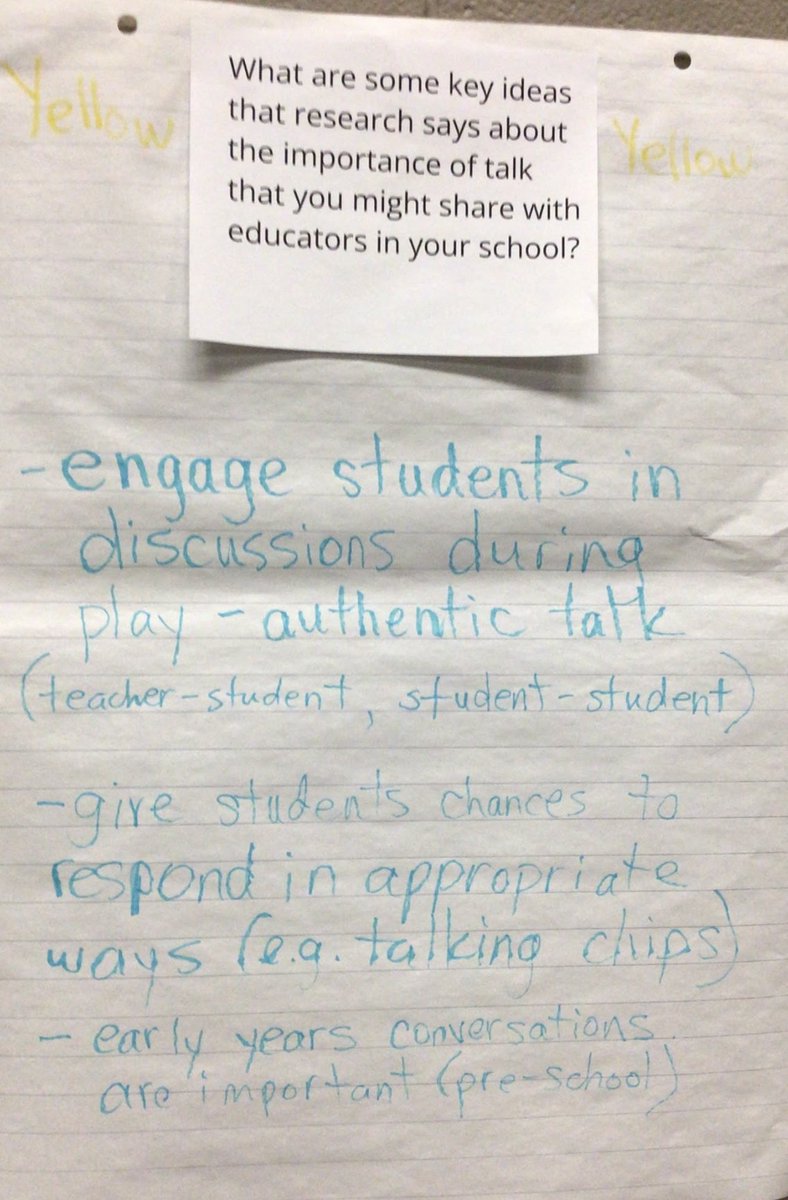 Yellow
What are some key ideas
that research says about
the importance of talk
that you might share with
educators in your school?
Yellow
- engage students in
discussions during
play - authentic talk
(teacher-student, student-student)
- give students chances to
respond in appropriate
ways (e.g. talking chips)
- early years conversations
are important (pre-school)